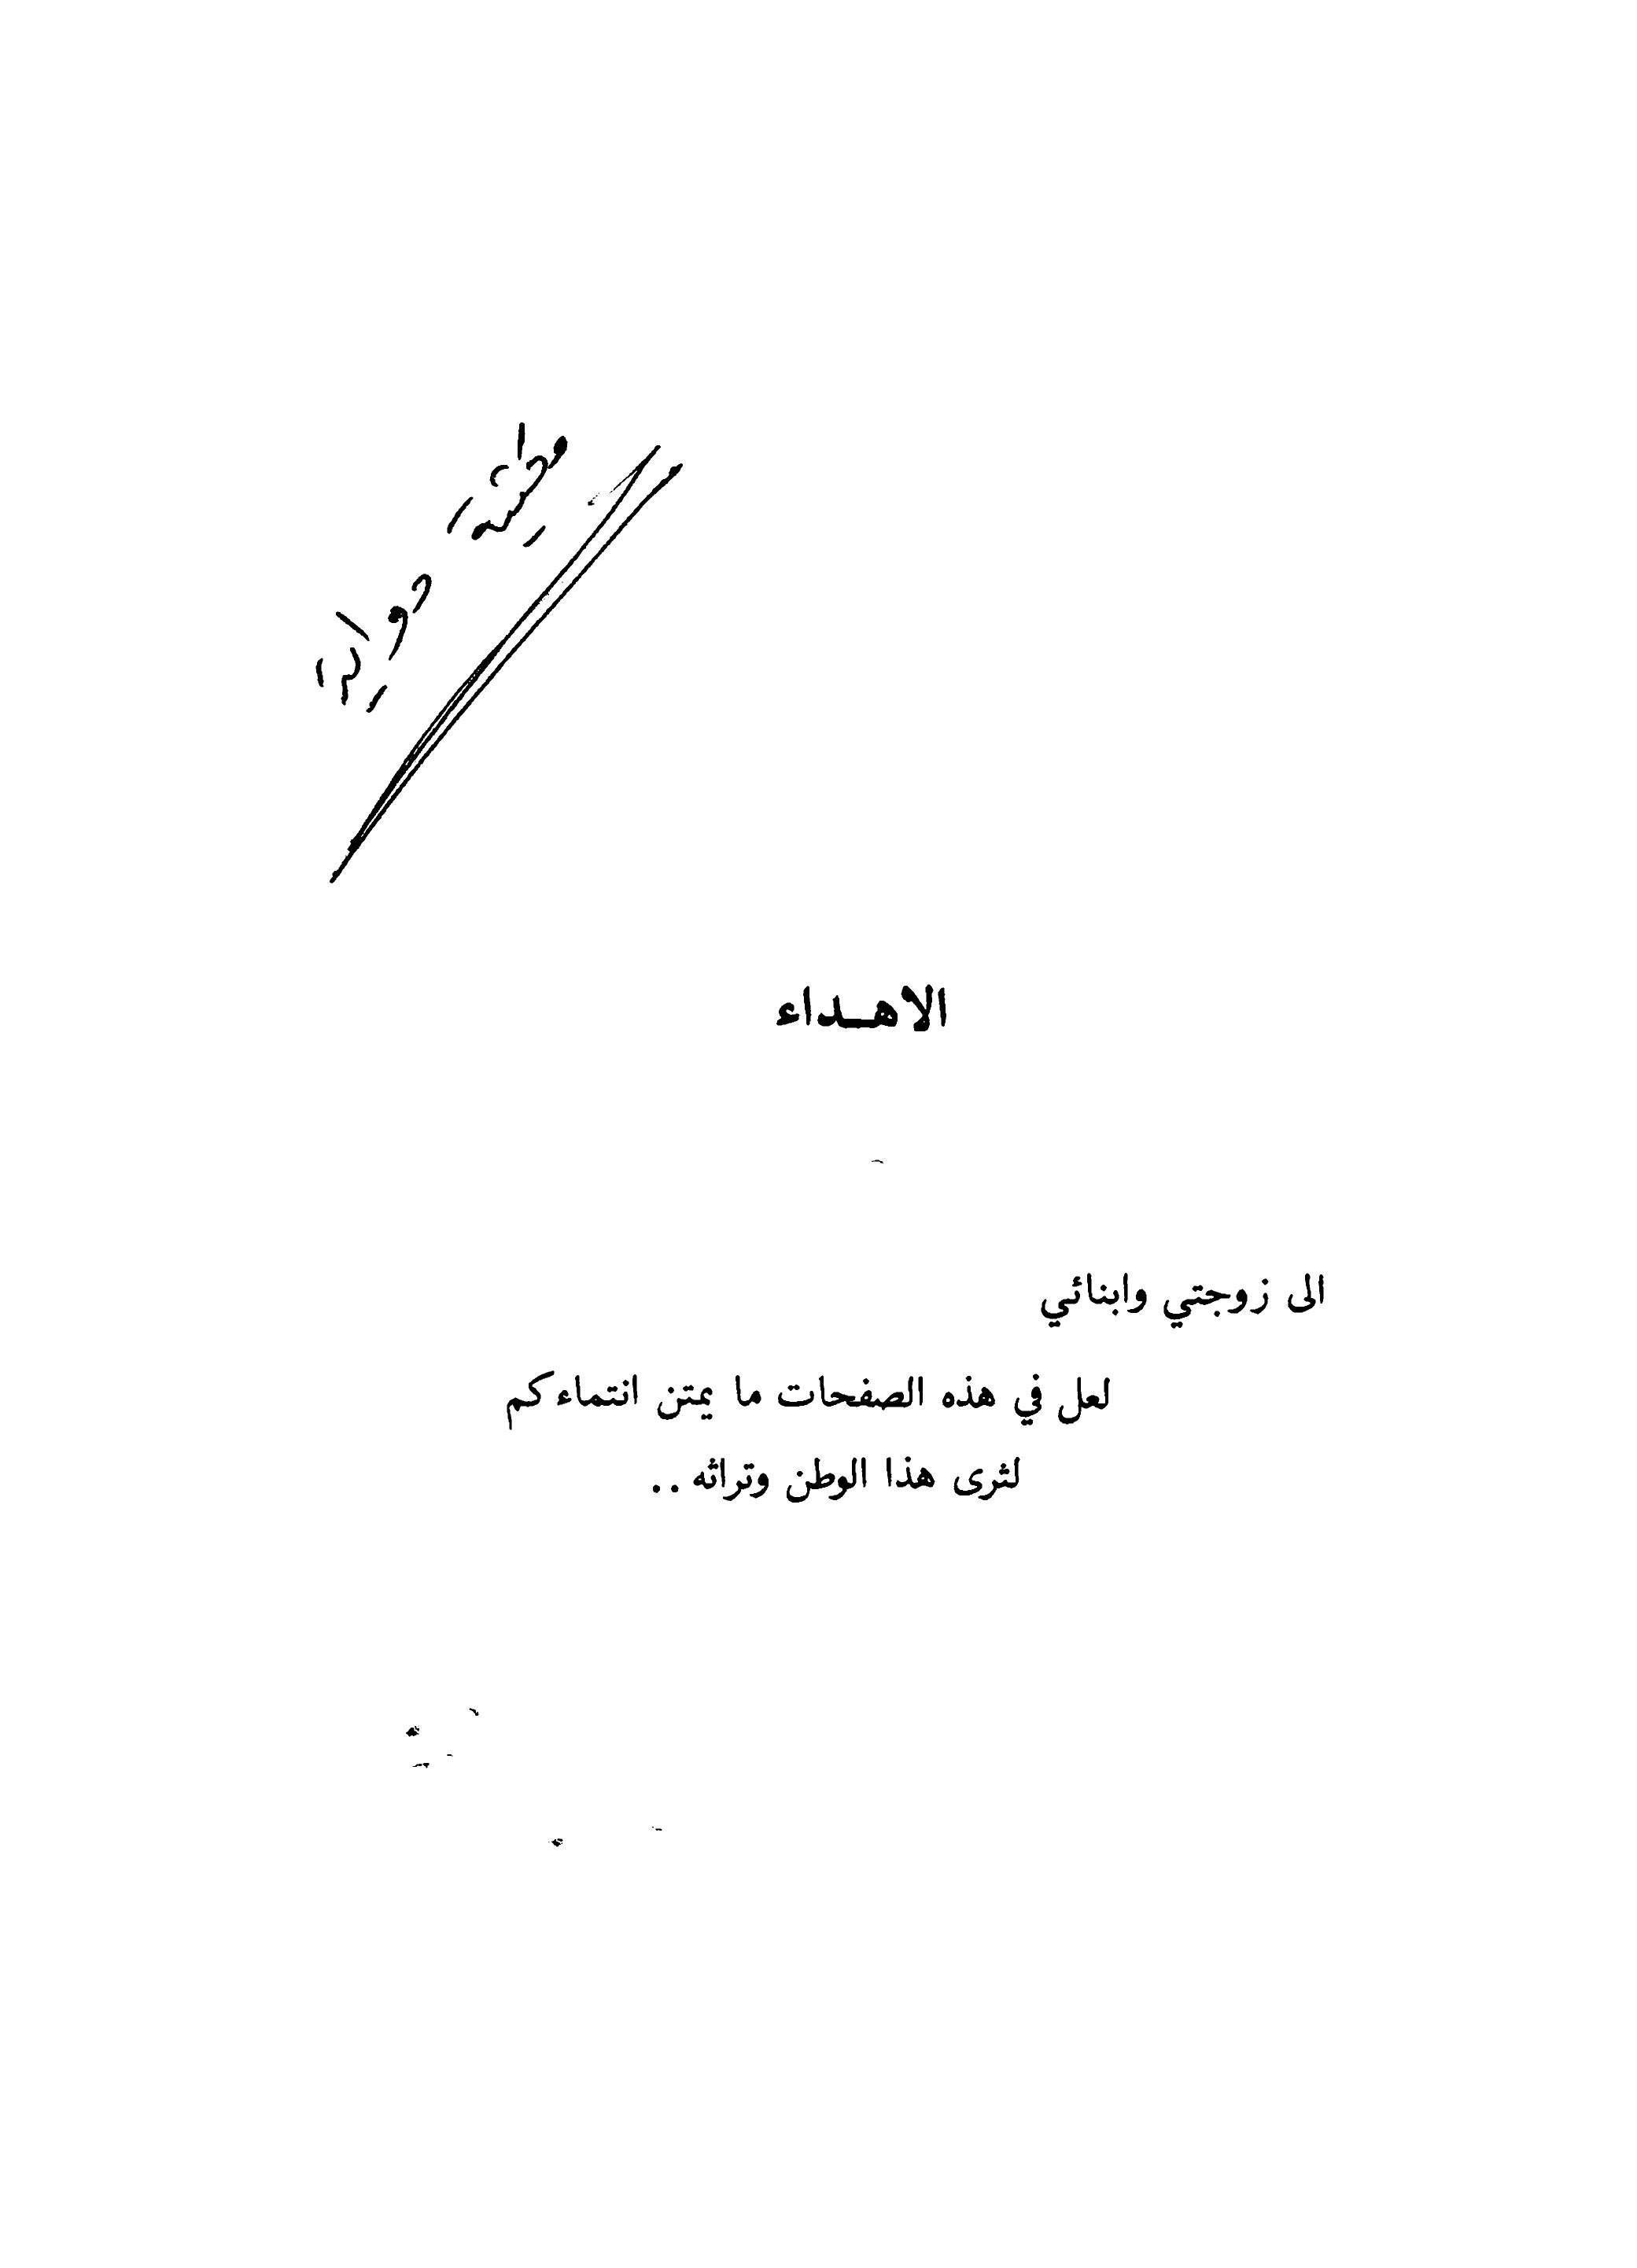 الاهـداء
الى زوجتي وابنائي
لعل في هذه الصفحات ما يمتن انتماءكم
لثرى هذا الوطن وتراثه ..